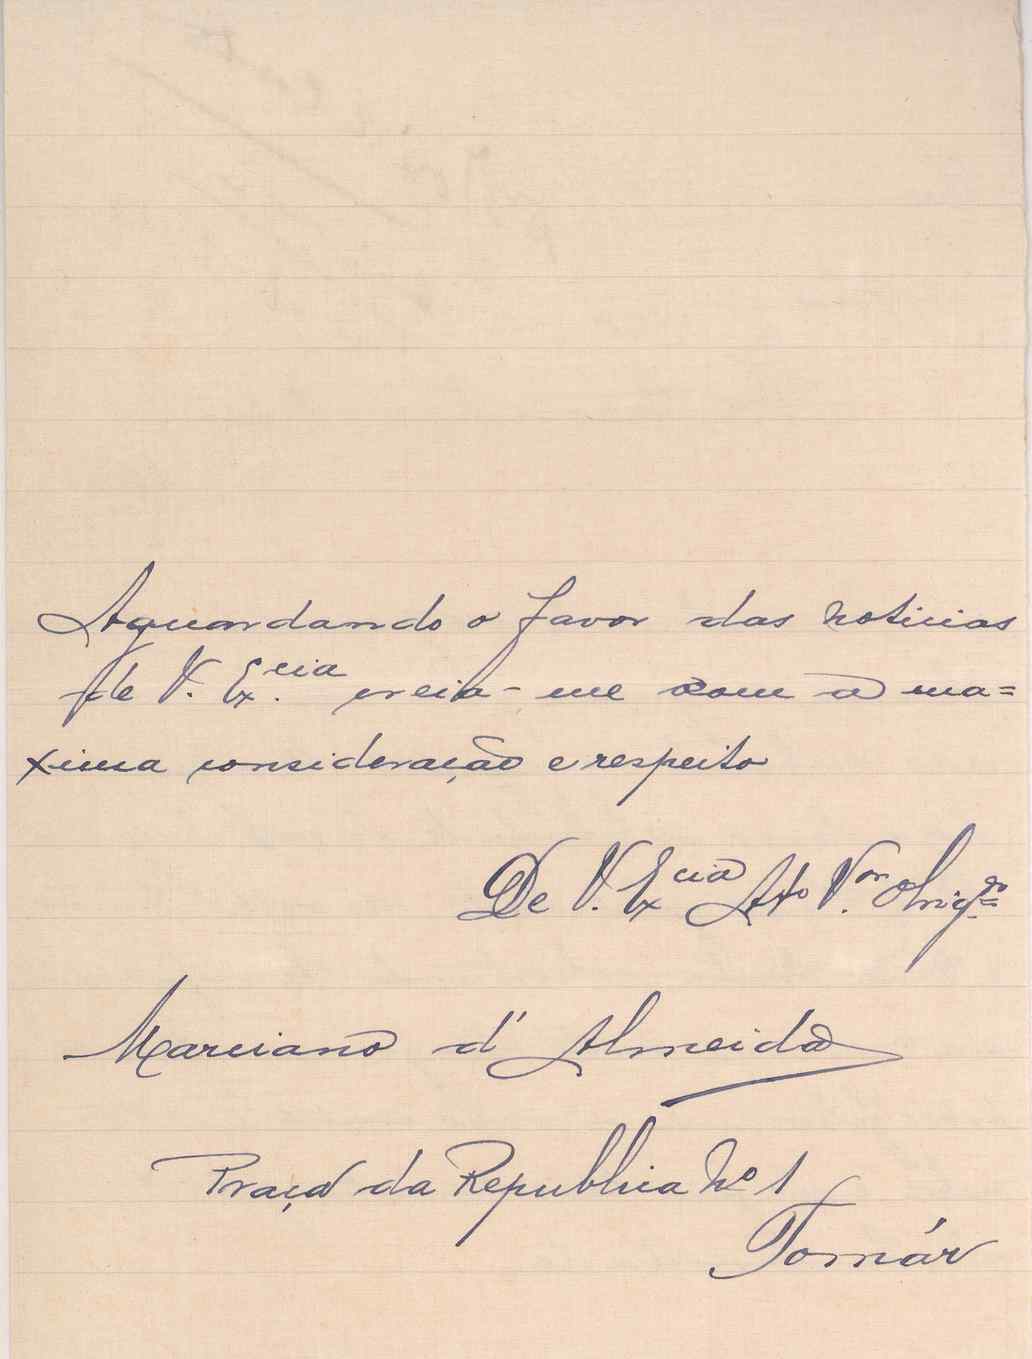 Aguardando o favor das noticias
de V. Ex.cia creia-me com a ma=
xima consideração e respeito
De V. Excia Atto V.or Obrig.do
Marciano d'Almeida
Praça da Republica No 1
Tomár